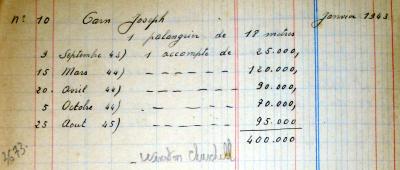 n° 10 Carn Joseph Janvier 1943
1 palangrier de 18 metres
9 Septembre 43) 1 accompte de 25.000,
15 Mars 44) - - - - - - 120.000,
20 Avril 44) - - - - - - 90.000,
5 Octobre 44) - - - - - - 70.000,
25 Aout 45) - - - - - - 95.000
400.000
_ Winston Churchill